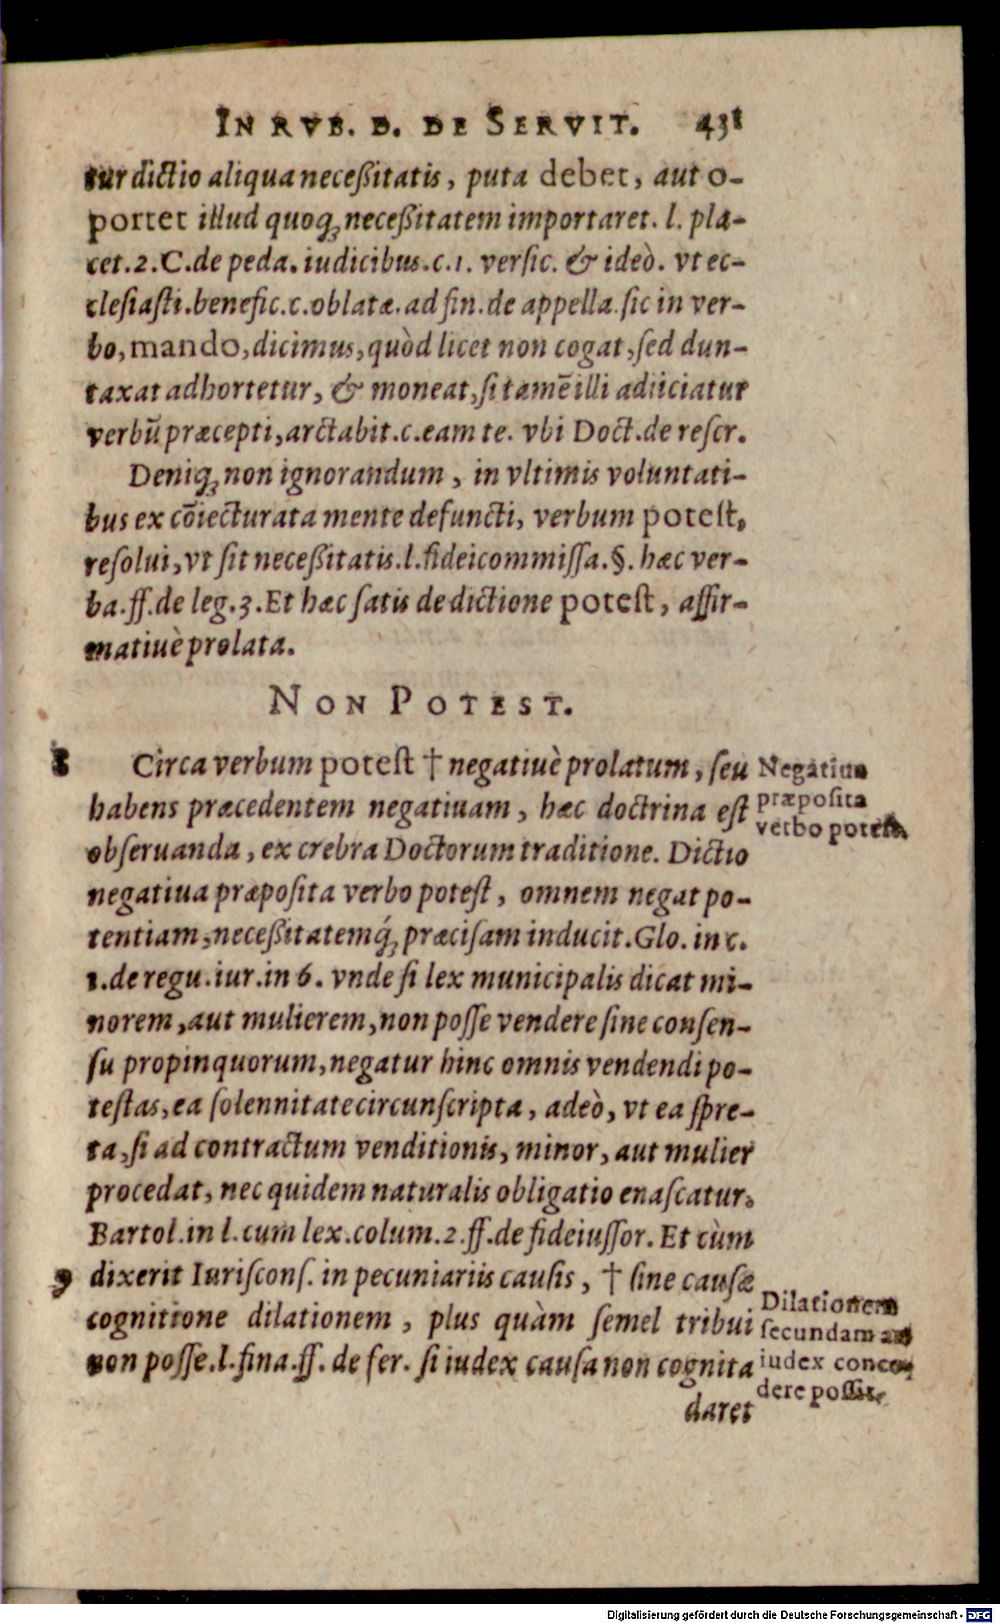 IN RVB. D. DE SERVIT. 431
tur dictio aliqua neceßitatis, puta debet, aut o-
portet illud quoq; necessitatem importaret. l. pla-
cet. 2. C. de peda. iudicibus. c. 1. versic. & ideò. vt ec-
clesiasti. benefic. c. oblatæ. ad fin. de appella. sic in ver-
bo, mando, dicimus, quòd licet non cogat, sed dun-
taxat adhortetur, & moneat, si tamē illi adiiciatur
verbū præcepti, arctabit. c. eam te. vbi Doct. de rescr.
Deniq; non ignorandum, in vltimis voluntati-
bus ex cōiecturata mente defuncti, verbum potest,
resolui, vt sit neceßitatis. l. fideicommissa. §. hæc ver-
ba. ff. de leg. 3. Et hæc satis de dictione potest, affir-
matiuè prolata.
NON POTEST.
8 Circa verbum potest † negatiuè prolatum, seu
habens præcedentem negatiuam, hæc doctrina est
obseruanda, ex crebra Doctorum traditione. Dictio
negatiua præposita verbo potest, omnem negat po-
tentiam, neceßitatemq́; præcisam inducit. Glo. in c.
1. de regu. iur. in 6. vnde si lex municipalis dicat mi-
norem, aut mulierem, non posse vendere sine consen-
su propinquorum, negatur hinc omnis vendendi po-
testas, ea solennitate circunscripta, adeò, vt ea spre-
ta, si ad contractum venditionis, minor, aut mulier
procedat, nec quidem naturalis obligatio enascatur.
Bartol. in l. cum lex. colum. 2. ff. de fideiussor. Et cùm
9 dixerit Iuriscons. in pecuniariis causis, † sine causæ
cognitione dilationem, plus quàm semel tribui
non posse. l. fina. ff. de fer. si iudex causa non cognita
daret
Negatiua
præposita
verbo potest.
Dilationem
secundam an
iudex conce-
dere possit.
Digitalisierung gefördert durch die Deutsche Forschungsgemeinschaft - DFG